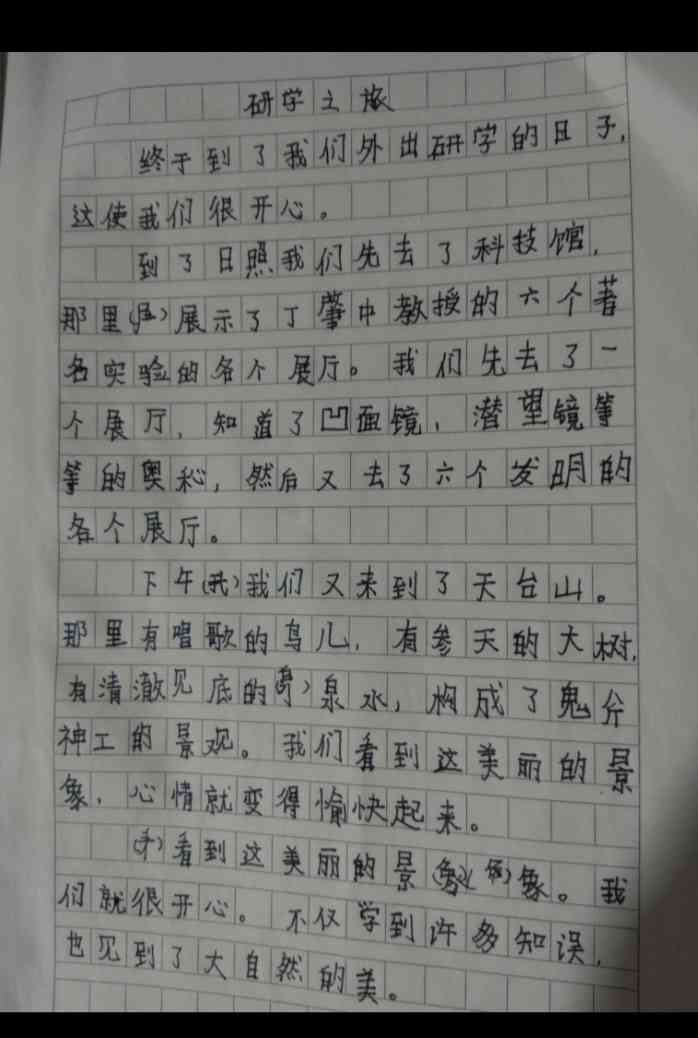 研学之旅
终于到了我们外出研学的日子,
这使我们很开心。
到了日照我们先去了科技馆,
那里展示了丁肇中教授的六个著
名实验的各个展厅。我们先去了一
个展厅,知道了凹面镜,潜望镜等
等的奥秘,然后又去了六个发明的
各个展厅。
下午(我)我们又来到了天台山。
那里有唱歌的鸟儿,有参天的大树,
有清澈见底的泉水,构成了鬼斧
神工的景观。我们看到这美丽的景
象,心情就变得愉快起来。
看到这美丽的景象。我
们就很开心。不仅学到许多知误,
也见到了大自然的美。